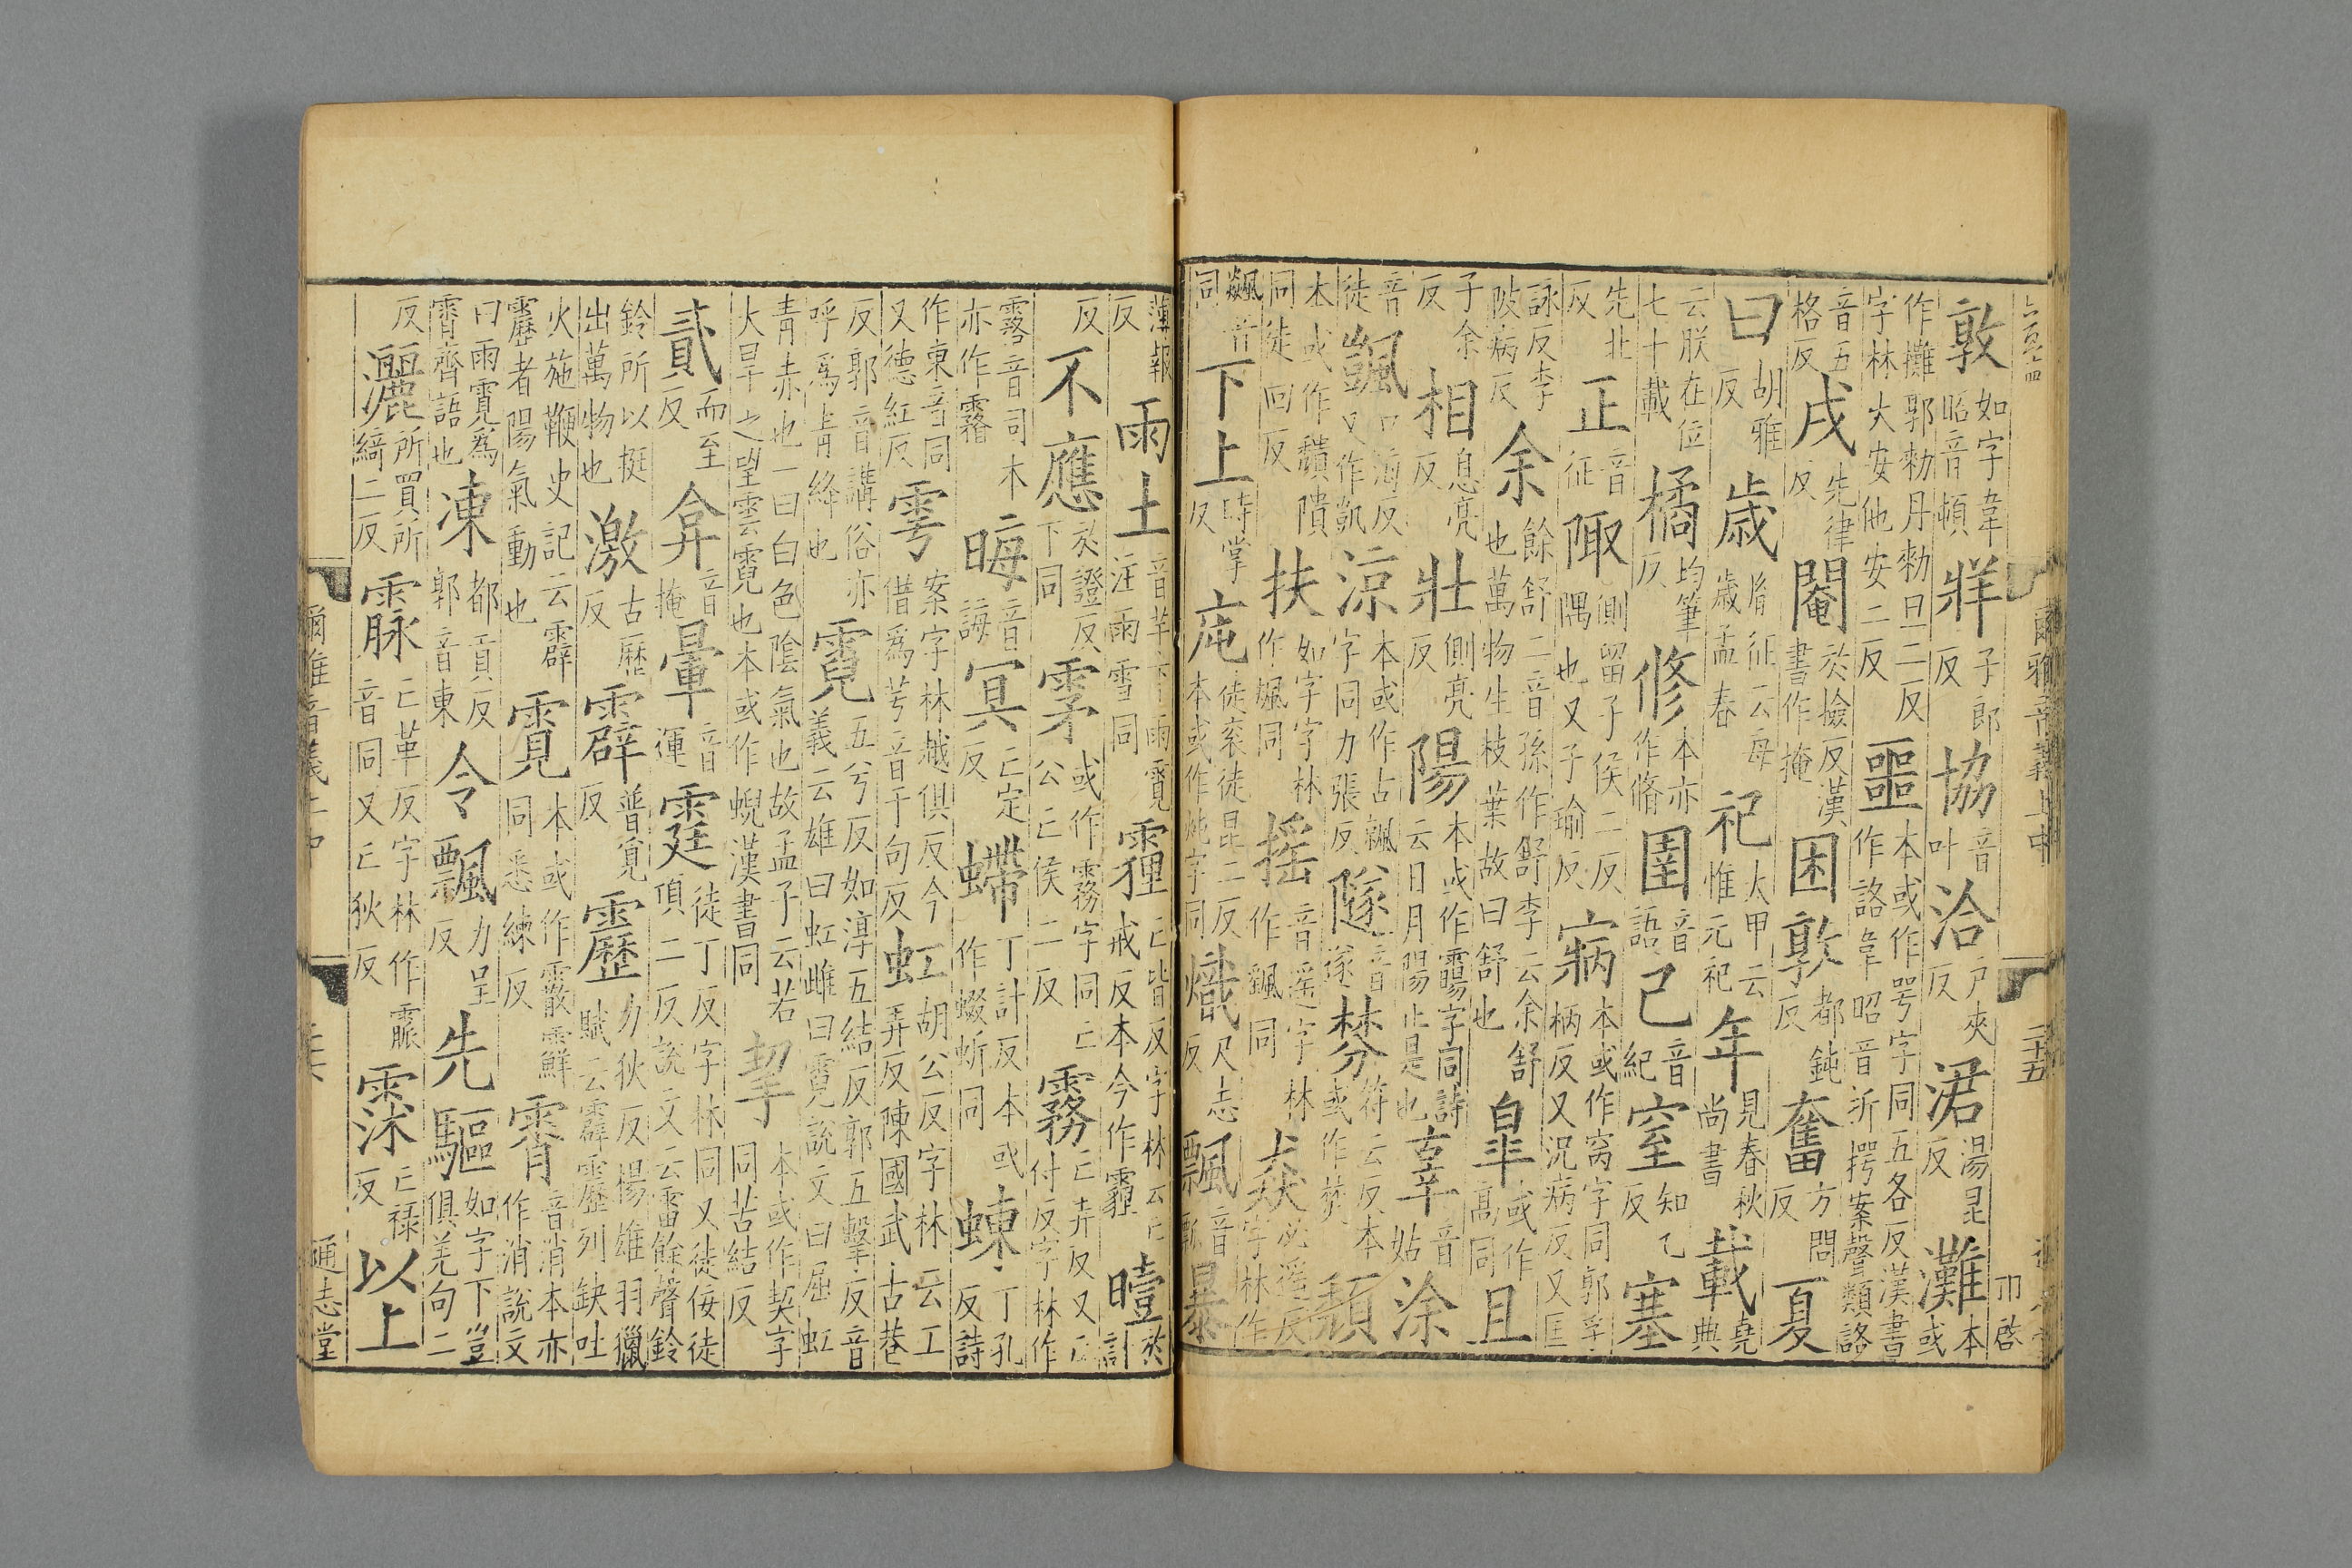 敦如字韋昭音頓牂子郎反協音叶洽戶夾反涒湯昆反灘本或
作攤郭勑丹勑旦二反字林大安他安二反噩本或作咢字同五各反漢書作詻韋昭音沂揢案聲類詻
音五格反戌先律反閹於檢反漢書作掩困敦都鈍反奮方問反夏
曰胡雅反歲脩征云每歲孟春祀太甲云惟元祀年見春秋尚書載堯典
云朕在位七十載橘均筆反修本亦作脩圉音語己音紀窒知乙反塞
先北反正音征陬側留子侯二反隅也又子瑜反寎本或作窉字同郭孚柄反又況病反又匡
詠反李陂病反余餘舒二音孫作舒李云余舒也萬物生枝葉故曰舒也皐或作高同且
子余反相息亮反壯側亮反陽本或作霷字同詩云日月陽止是也辜音姑涂
音徒颽口海反又作凱涼本或作古飆字同力張反隧音遂棼符云反本或作焚頹
本或作穨隤同徒回反扶如字字林作颫同搖音遙字林作颻同猋必遙反字林作
飆音同下上時掌反庉徒袞徒昆二反本或作炖字同熾尺志反飄音瓢暴
薄報反雨土音芋亦音雨注雨雪同霾亡皆反字林云亡戒反本今作霾曀於計
反不應於證反下同雺或作霧字同亡公亡侯二反霧亡弄反又亡付反字林作
霿音同本亦作霿晦音誨冥亡定反螮丁計反本或作蝃蚚同蝀丁孔反詩
作東音同又德紅反雩案字林越俱反今借爲芌音于句反虹胡公反字林云工弄反陳國武古巷
反郭音講俗亦呼爲青絳也霓五兮反如淳五結反郭五擊反音義云雄曰虹雌曰霓說文曰屈虹
青赤也一曰白色陰氣也故孟子云若大旱之望雲霓也本或作蜺漢書同挈本或作契字同苦結反
貳而至反弇音掩暈音運霆徒丁反字林同又徒佞徒頂二反說文云雷餘聲鈴
鈴所以挺出萬物也激古歷反霹普覓反靂力狄反楊雄羽獵賦云霹靂列缺吐
火施鞭史記云霹靂者陽氣動也霓本或作霰霹同悉練反霄音消本亦作消說文
曰雨霓爲霄齊語也凍都貢反郭音東令飄力呈反先驅如字下豈俱羌句二
反灑所買所綺二反霡亡革反字林作霢音同又亡狄反霂亡祿反以上